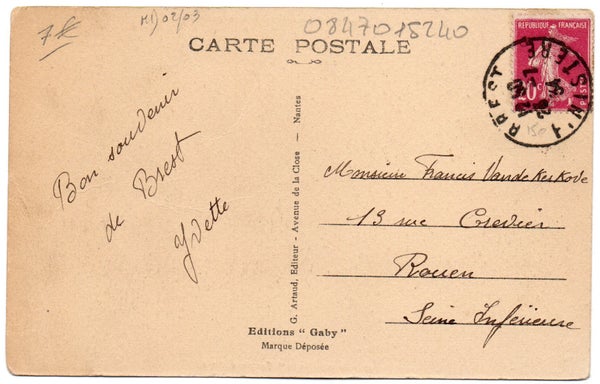 7€
02/03
0847015240
CARTE POSTALE
REPUBLIQUE FRANÇAISE
20c
POSTES
BREST
FINISTERE
Bon souvenir
de Brest
Yvette
G. Artaud, Editeur - Avenue de la Close - Nantes
Monsieur Francis Vandekerkove
13 rue Crevier
Rouen
Seine Inférieure
Editions " Gaby "
Marque Déposée